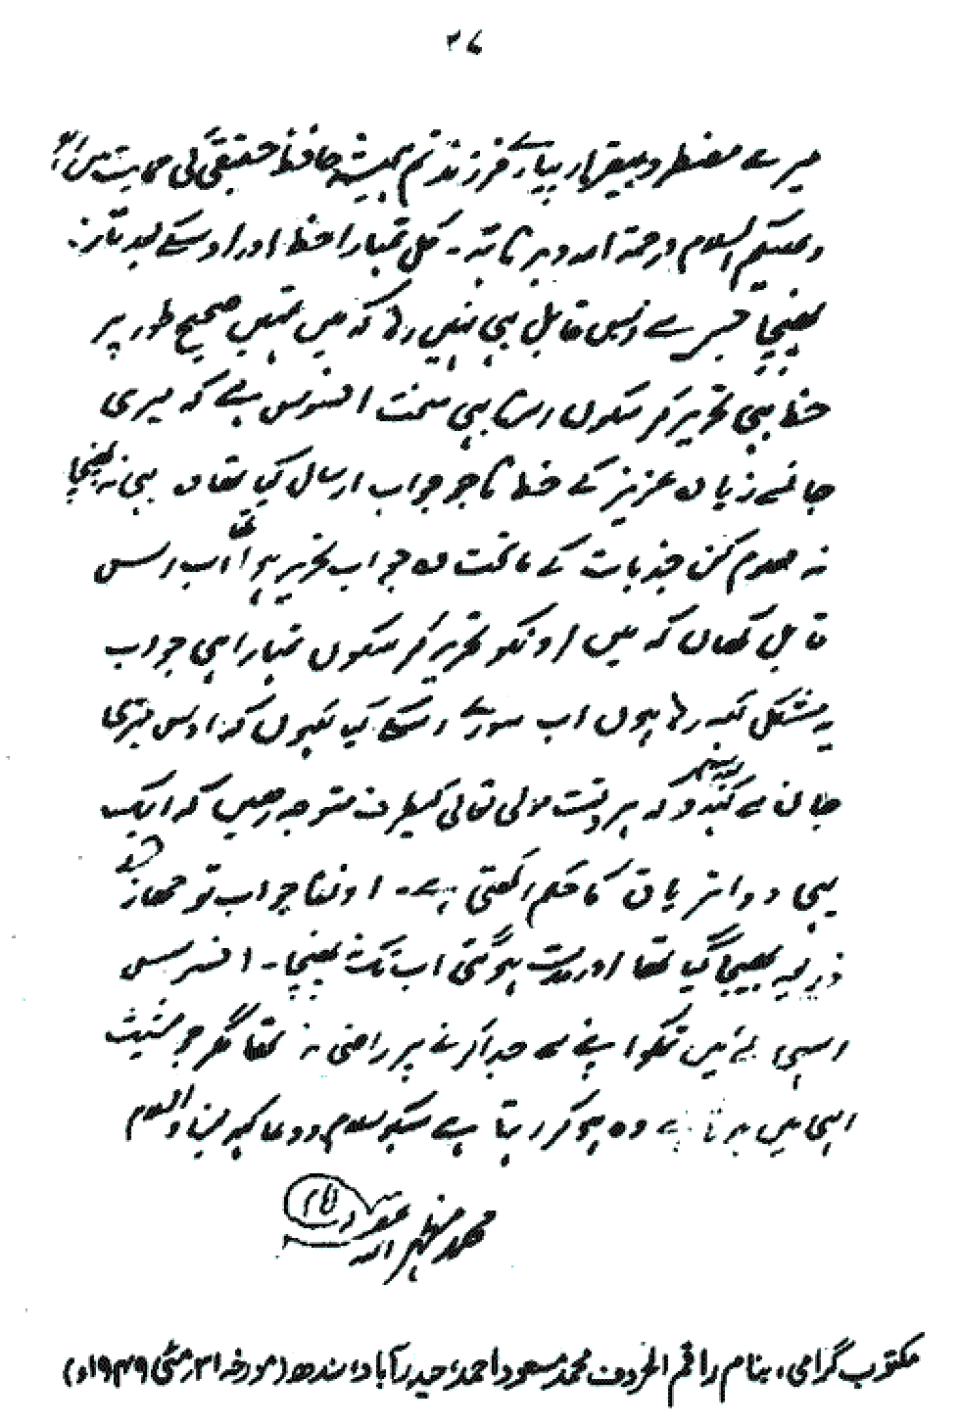 ۲۷
میرے مضطر و بیقرار پیارے فرزند تم ہمیشہ حافظ حقیقی کی حمایت میں رہو
وعلیکم السلام ورحمۃ اللہ وبرکاتہ ۔ کل تمہارا خط اور اوسکے بعد تار
پہنچا جس سے میں قابل ہی نہیں رہا کہ میں تمہیں صحیح طور پر
خط بہی تحریر کر سکوں اسکا بہی سخت افسوس ہے کہ میری
جان سے زیادہ عزیز کے خط کا جو جواب ارسال کیا تھا وہ بہی نہ پہنچا
نہ معلوم کن جذبات کے ماتحت وہ جواب تحریر ہوا تھا اب اس
قابل کہاں کہ میں اونکو تحریر کر سکوں تمہارا ہی جواب
بمشکل لکھ رہا ہوں اب سوائے اسکے کیا کہوں کہ اوس میری
جان سے کہدو کہ ہر وقت مولی تعالی کیطرف متوجہ رہیں کہ ایک
یہی دوا تریاق کا حکم رکھتی ہے ۔ اونکا جواب تو جہاز کے
ذریعہ بھیجا گیا تھا اور مدت ہوگئی اب تک نہ پہنچا ۔ افسوس
میں تمکو اپنے سے جدا کرنے پر راضی نہ تھا مگر جو مشیت
الہی میں ہوتا ہے وہ ہو کر رہتا ہے سبکو سلام و دعا کہہ دینا والسلام
محمد مظہر اللہ
مکتوب گرامی، بنام راقم الحروف محمد مسعود احمد، حیدرآباد، سندھ (مورخہ ۳۱؍مئی ۱۹۴۹ء)